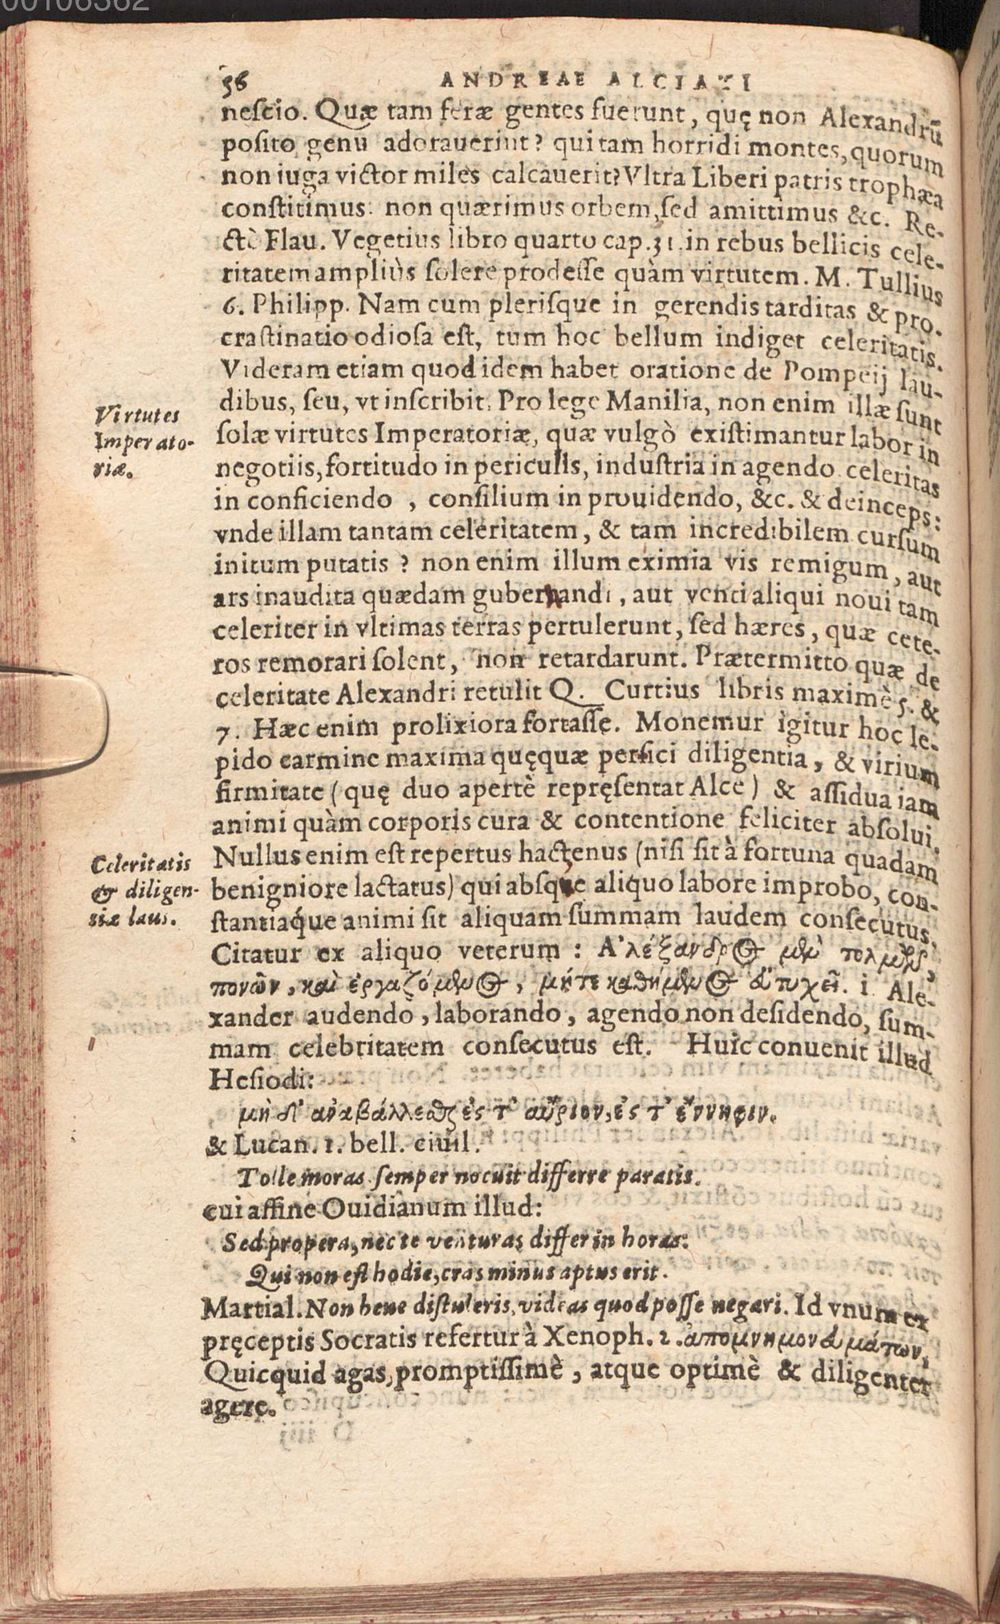 00106362
56 ANDREAE ALCIATI
nescio. Quæ tam feræ gentes fuerunt, quę non Alexandrū
posito genu adorauerint? qui tam horridi montes, quorum
non iuga victor miles calcauerit? Vltra Liberi patris trophæa
constitimus: non quærimus orbem, sed amittimus &c. Re-
ctè Flau. Vegetius libro quarto cap. 31. in rebus bellicis cele-
ritatem ampliùs solere prodesse quàm virtutem. M. Tullius
6. Philipp. Nam cum plerisque in gerendis tarditas & pro-
crastinatio odiosa est, tum hoc bellum indiget celeritatis.
Videram etiam quod idem habet oratione de Pompeij lau-
dibus, seu, vt inscribit, Pro lege Manilia, non enim illæ sunt
Virtutes
Imperato-
riæ.
solæ virtutes Imperatoriæ, quæ vulgò existimantur labor in
negotiis, fortitudo in periculis, industria in agendo celeritas
in conficiendo , consilium in prouidendo, &c. & deinceps:
vnde illam tantam celeritatem, & tam incredibilem cursum
initum putatis ? non enim illum eximia vis remigum, aut
ars inaudita quædam gubernandi, aut venti aliqui noui tam
celeriter in vltimas terras pertulerunt, sed hæres, quæ cete-
ros remorari solent, non retardarunt. Prætermitto quæ de
celeritate Alexandri retulit Q. Curtius libris maximè 5. &
7. Hæc enim prolixiora fortasse. Monemur igitur hoc le-
pido carmine maxima quęquæ persici diligentia, & virium
firmitate (quę duo apertè repręsentat Alce) & assidua iam
animi quàm corporis cura & contentione feliciter absolui.
Celeritatis
& diligen-
tiæ laus.
Nullus enim est repertus hactenus (nisi sit à fortuna quadam
benigniore lactatus) qui absque aliquo labore improbo, con-
stantiáque animi sit aliquam summam laudem consecutus.
Citatur ex aliquo veterum : Ἀλέξανδρος μὲν τολμῶν,
πονῶν, καὶ ἐργαζόμενος, μήτε καθήμενος εὐτυχεῖ. i. Ale-
xander audendo, laborando, agendo non desidendo, sum-
mam celebritatem consecutus est. Huic conuenit illud
Hesiodi:
μὴ δ' ἀναβάλλεσθαι ἔς τ' αὔριον, ἔς τ' ἔννηφιν.
& Lucan. 1. bell. ciuil.
Tolle moras semper nocuit differre paratis.
cui affine Ouidianum illud:
Sed propera, nec te venturas differ in horas:
Qui non est hodie, cras minus aptus erit.
Martial. Non bene distuleris, videas quod posse negari. Id vnum ex
pręceptis Socratis refertur à Xenoph. 2. ἀπομνημονευμάτων,
Quicquid agas, promptissimè, atque optimè & diligenter
agere.